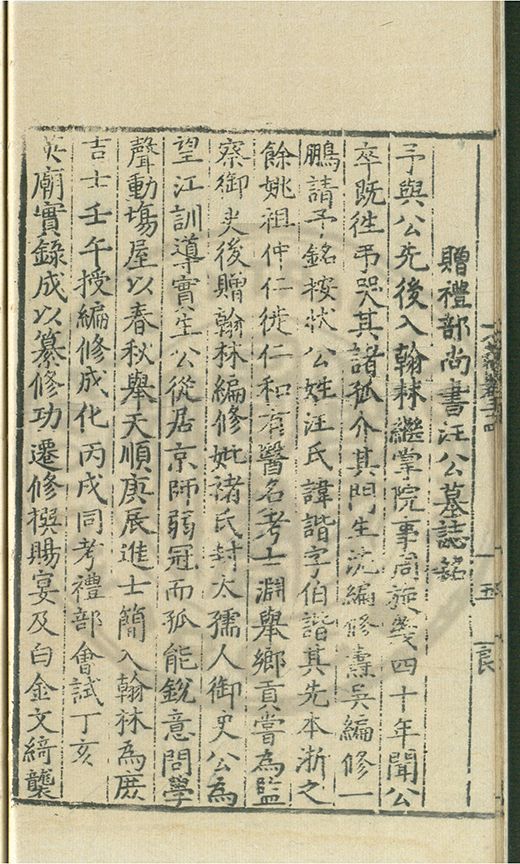 五 良
贈禮部尚書汪公墓誌銘
予與公先後入翰林繼掌院事周旋幾四十年聞公
卒既徃弔哭其諸孤介其門生沈編修燾吳編修一
鵬請予銘按狀公姓汪氏諱諧字伯諧其先本浙之
餘姚祖仲仁徙仁和有醫名考士淵舉鄉貢嘗為監
察御史後贈翰林編修妣禇氏封太孺人御史公為
望江訓導實生公從居京師弱冠而孤能銳意問學
聲動塲屋以春秋舉天順庚辰進士簡入翰林為庶
吉士壬午授編修成化丙戌同考禮部會試丁亥
英廟實錄成以纂修功遷修撰賜宴及白金文綺襲